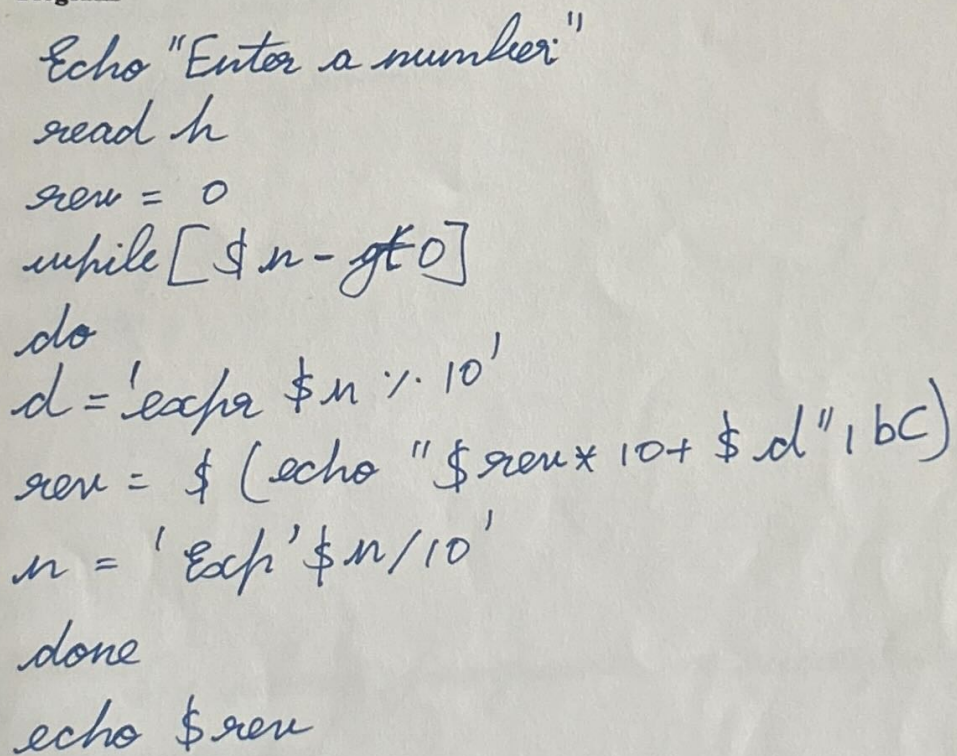 Echo "Enter a number:"
read h
rev = 0
while [ $ n - gt 0 ]
do
d = 'expr $ n % 10'
rev = $ (echo "$ rev * 10 + $ d" | bC)
n = 'Exp' $ n / 10'
done
echo $ rev